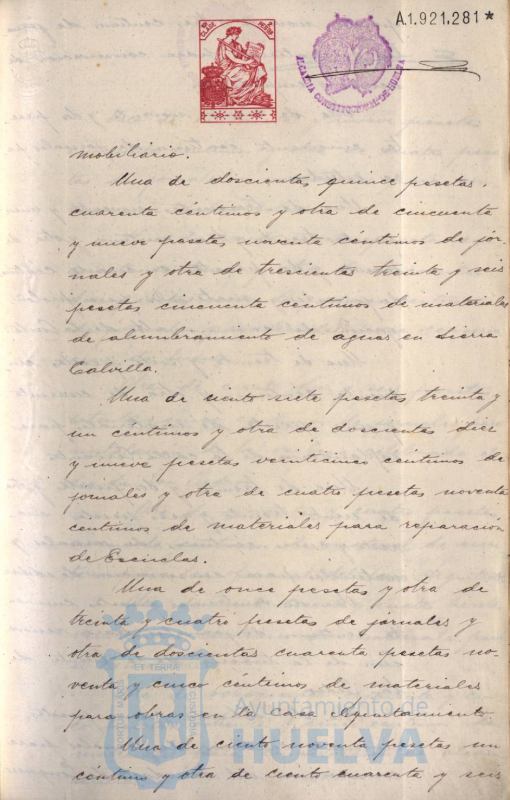 A.1.921.281*
ALCALDIA CONSTITUCIONAL DE HUELVA
mobiliario.
Una de doscientas quince pesetas
cuarenta céntimos y otra de cincuenta
y nueve pesetas noventa céntimos de jor-
nales y otra de trescientas treinta y seis
pesetas cincuenta céntimos de materiales
de alumbramiento de aguas en Sierra
Calvilla.
Una de ciento siete pesetas treinta y
un céntimos y otra de doscientas diez
y nueve pesetas veinticinco céntimos de
jornales y otra de cuatro pesetas noventa
céntimos de materiales para reparación
de Escuelas.
Una de once pesetas y otra de
treinta y cuatro pesetas de jornales y
otra de doscientas cuarenta pesetas no-
venta y cinco céntimos de materiales
para obras en la casa Ayuntamiento.
Una de ciento noventa pesetas un
céntimo y otra de ciento cuarenta y seis
Ayuntamiento de
HUELVA